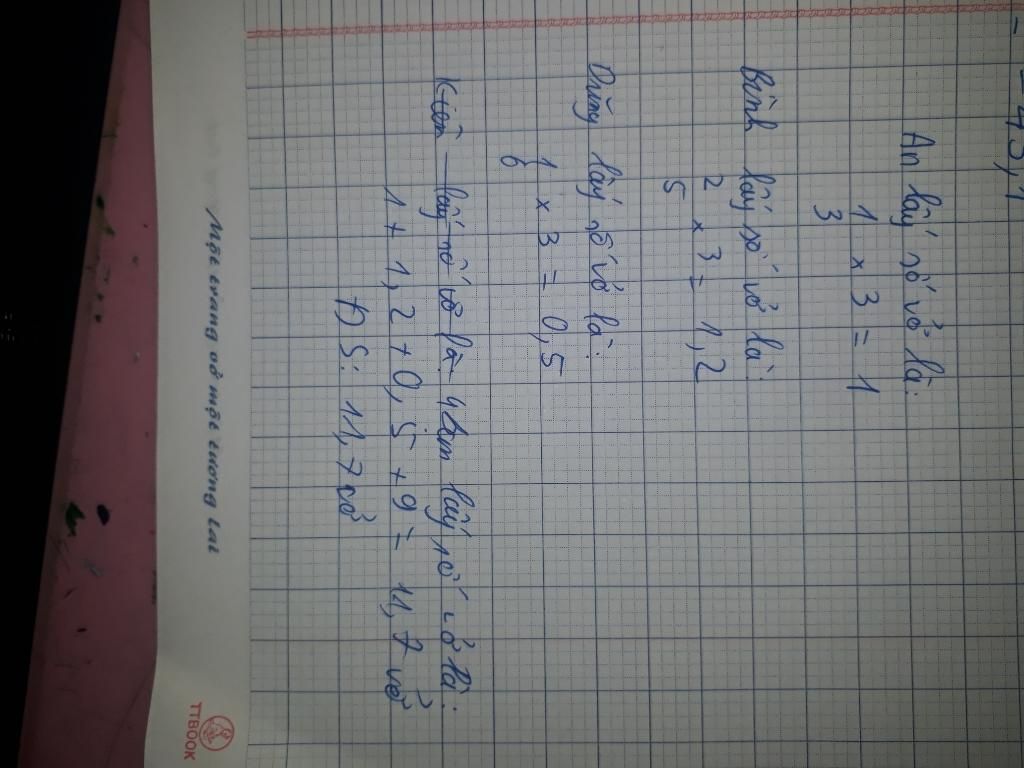 - 43,1
An lấy số vở là:
1/3 x 3 = 1
Bình lấy số vở là:
2/5 x 3 = 1,2
Dũng lấy số vở là:
1/6 x 3 = 0,5
4 bạn lấy số vở là:
1 + 1,2 + 0,5 + 9 = 11,7 vở
ĐS: 11,7 vở
Một trang vở một tương lai
TTBOOK